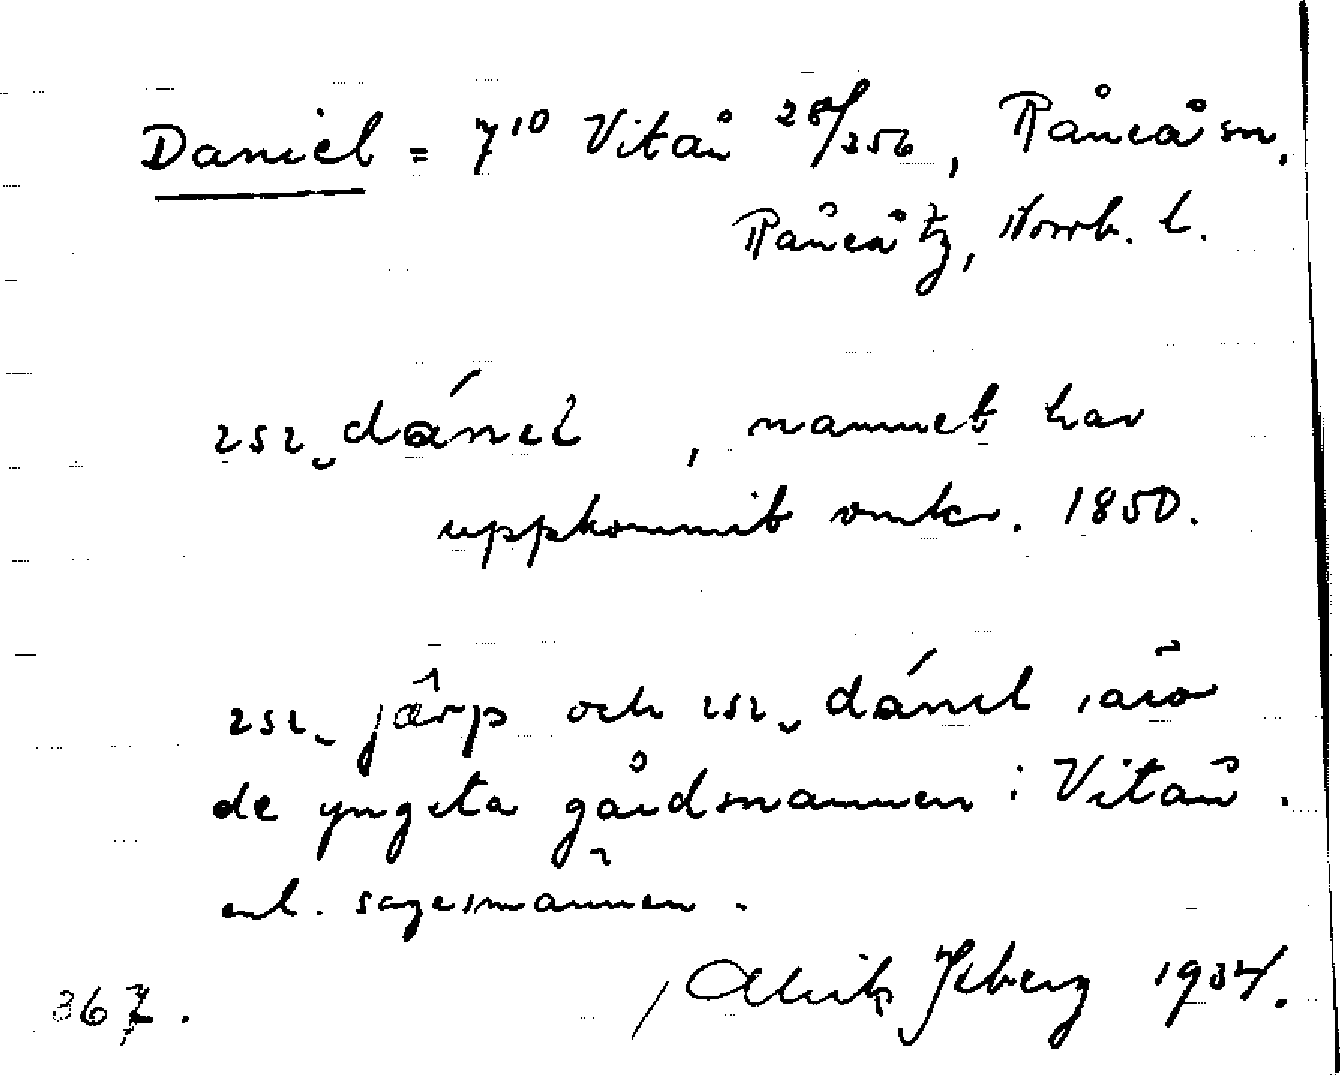 Daniel = 7¹⁰ Vitån 28/256, Råneå sn,
Råneå tg, Norrb. l.
ısı‿dánel , namnet har
uppkommit omkr. 1850.
ısı‿ jârp och ısı‿ dánel , äro
de yngsta gårdsnamnen i Vitån .
enl. sagesmännen .
Isberg 1934.
367 .